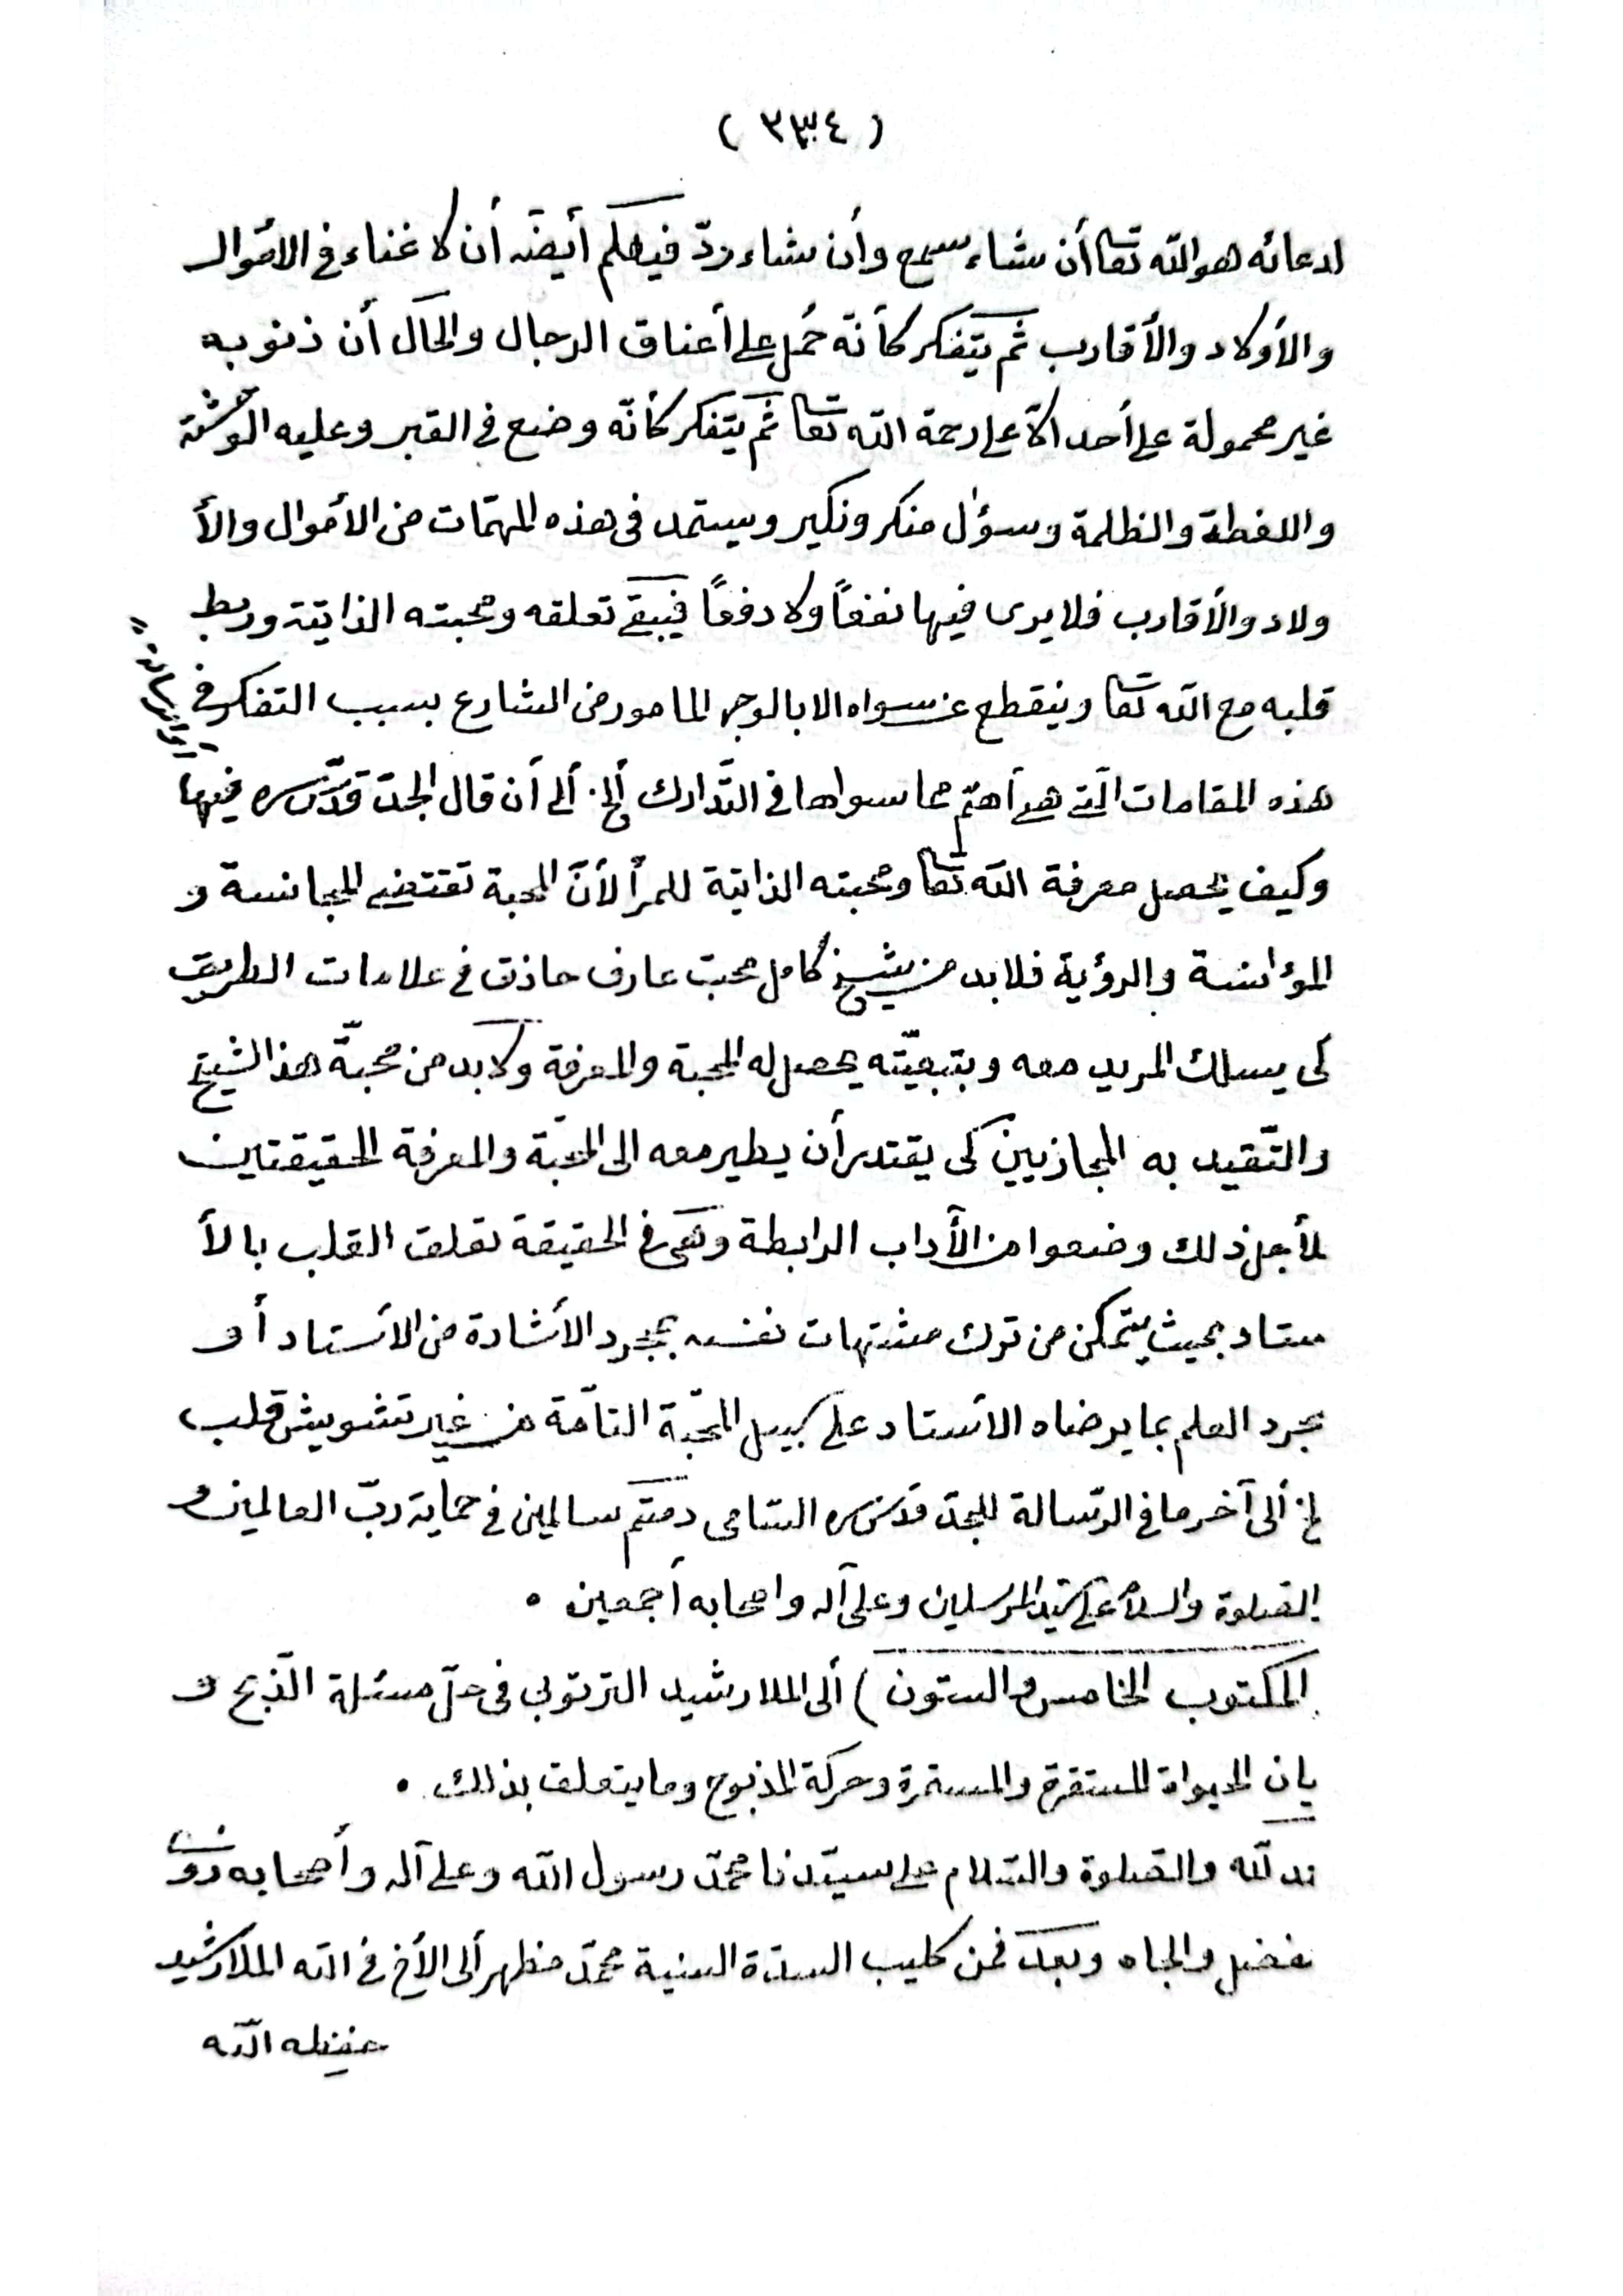 ( ٣٣٤ )
ادعائه هو الله تعا أن شاء سمع وأن شاء ردّ فيهلكم أيضًا أن لا غناء في الأموال
والأولاد والأقارب ثم يتفكر كأنّه حُمل على أعناق الرجال والحال أن ذنوبه
غير محمولة على أحد الاّ على رحمة الله تعا ثم يتفكر كأنّه وضع في القبر وعليه الوحشة
والضغطة والظلمة وسؤال منكر ونكير ويستمد في هذه المهمّات من الأموال والأ
ولاد والأقارب فلا يرى فيها نفعًا ولا دفعًا فيبقى تعلقه ومحبته الذاتيّة وربط
قلبه مع الله تعا وينقطع عن سواه الا بالوجه المامور من الشارع بسبب التفكر في
هذه المقامات الّتى هى أهمّ مما سواها في التّدارك ألخ. ألى أن قال الجدّ قدّس سره فيها
وكيف يحصل معرفة الله تعا ومحبته الذاتية للمرأ لأنّ المحبة تقتضى المجانسة و
المؤانسة والرؤية فلا بد من شيخ كامل محبّ عارف حاذق في علامات الطريق
كى يسلك المريد معه وبتبعيّته يحصل له المحبة والمعرفة ولا بد من محبّة هذا الشيخ
والتّقيد به المجازيين كى يقتدر أن يطير معه الى المحبّة والمعرفة الحقيقتين
لأجل ذلك وضعوا من الأداب الرابطة وهى في الحقيقة تعلق القلب بالأ
ستاد بحيث يتمكن من ترك مشتهيات نفسه بمجرد الأشارة من الأستاد أو
بمجرد العلم بما يرضاه الأستاد على سبيل المحبّة التامّة من غير تشويش قلب
لخ ألى آخر ما في الرّسالة للجدّ قدّس سره السّامى دمتم سالمين في حماية ربّ العالمين و
الصّلوة والسلام على سيّد المرسلين وعلى آله واصحابه أجمعين .
المكتوب الخامس والستون ) ألى الملا رشيد الترتوبى في حلّ مسئلة الذّبح و
يان الحيواة المستقرة والمستمرة وحركة المذبوح وما يتعلق بذلك .
مد لله والصّلوة والسّلام على سيّدنا محمّد رسول الله وعلى آله وأصحابه ذوى
لفضل والجاه وبعد فمن كليب السدّة السنية محمّد مظهر ألى الأخ في الله الملا رشيد
حفظه الله